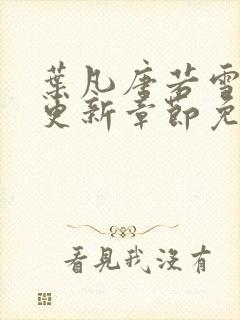 葉凡唐若雪
更新章節免
看見我沒有